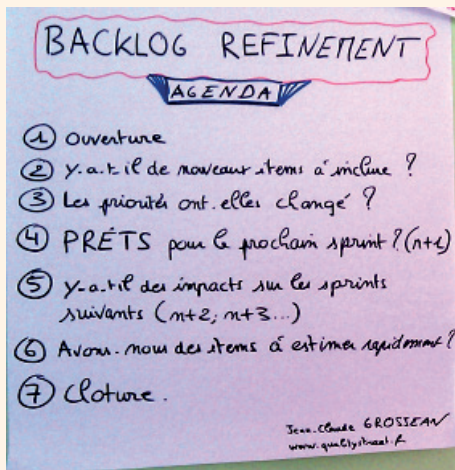 BACKLOG REFINEMENT
AGENDA
1 Ouverture
2 Y.a.t il de nouveaux items à inclure ?
3 Les priorités ont.elles changé ?
4 PRÊTS pour le prochain sprint ? (n+1)
5 Y-a-t-il des impacts sur les sprints
suivants (n+2; n+3...)
6 Avons-nous des items à estimer rapidement ?
7 Cloture.
Jean-Claude GROSJEAN
www.qualitystreet.fr